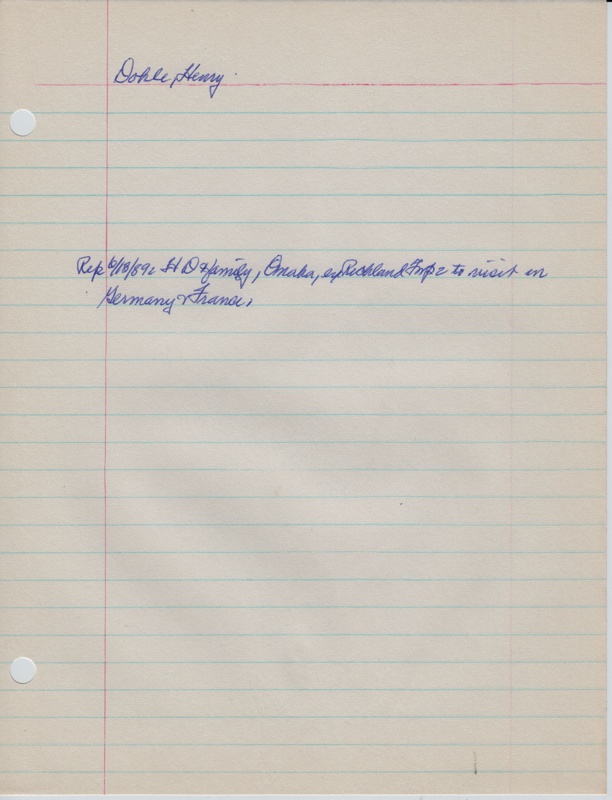 Dohle, Henry
Rep 6/18/92 H D & family, Omaha, ex Richland Twp to visit in
Germany & France.